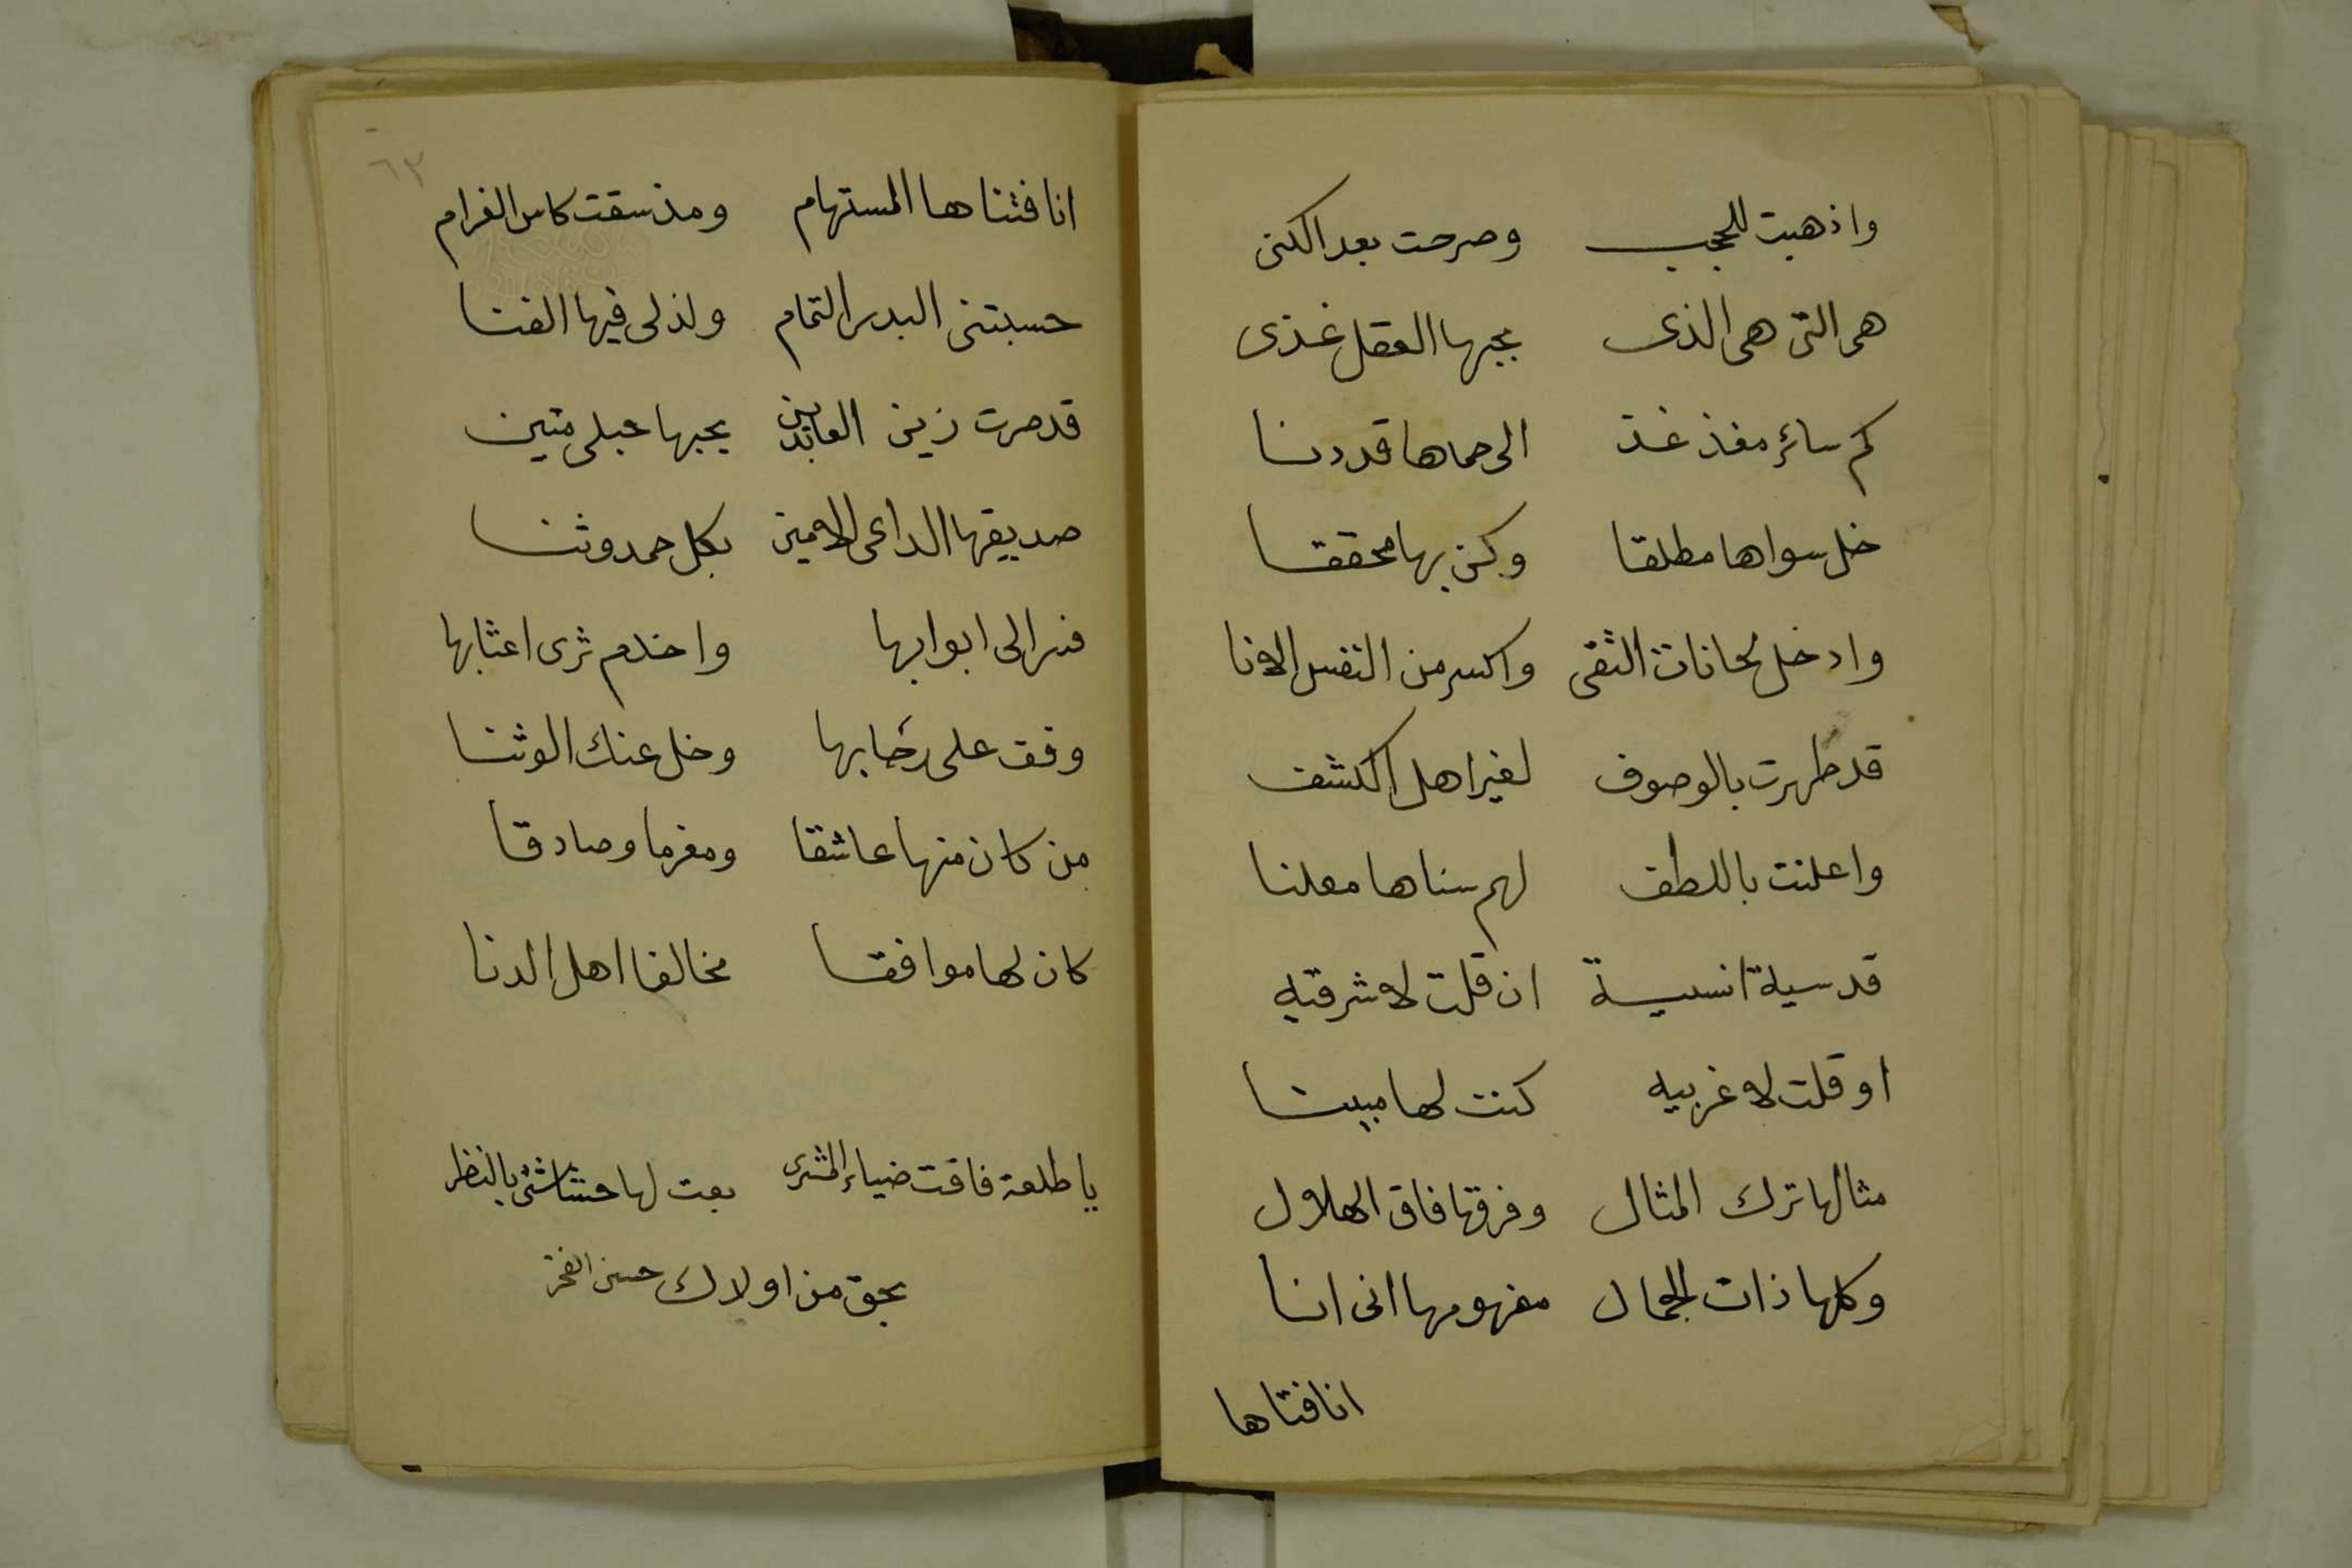 واذهبت للحجب وصرحت بعد الكنى
هى التى هى الذى بحبها العقل غذى
كم سائر مغذ غذ الى حماها قد دنا
خل سواها مطلقا وكن بها محققا
وادخل لحانات التقى واكسر من النفس الانا
قد ظهرت بالوصوف لغير اهل الكشف
واعلنت باللطف لهم سناها معلنا
قدسية انسية ان قلت لا شرقيه
او قلت لا غربيه كنت لها مبينا
مثالها ترك المثال وفرقها فاق الهلال
وكلها ذات الجمال مفهومها انى انا
انا فتاها
٦٣
انا فتناها المستهام ومذ سقت كاس الغرام
حسبتنى البدر التمام ولذلى فيها الفنا
قد صرت زين العابدين بحبها حبلى متين
صديقها الداعى الامين بكل حمد وثنا
فسر الى ابوابها واخدم ثرى اعتابها
وقف على رحابها وخل عنك الوثنا
من كان منها عاشقا ومغرما وصادقا
كان لها موافقا مخالفا اهل الدنا
يا طلعة فاقت ضياء المشترى بعت لها حشاشتى بالنظر
بحق من اولاك حسن